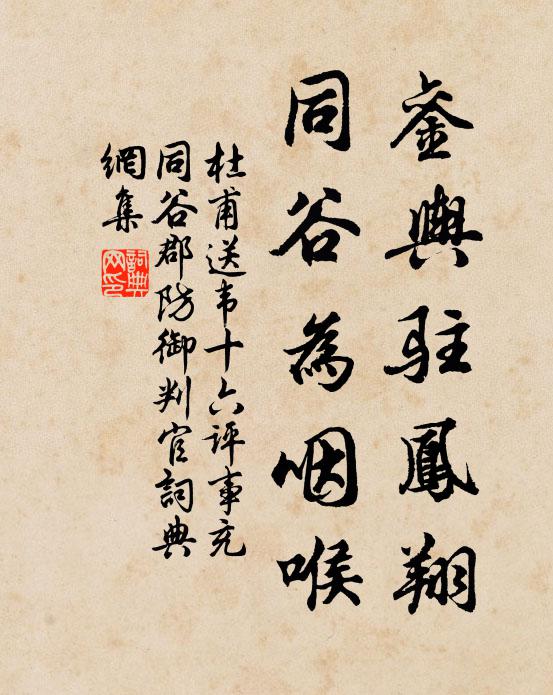 銮輿駐鳳翔
同谷為咽喉
杜甫送韦十六評事充
同谷郡防御判官詞典
網集
詞典
网印